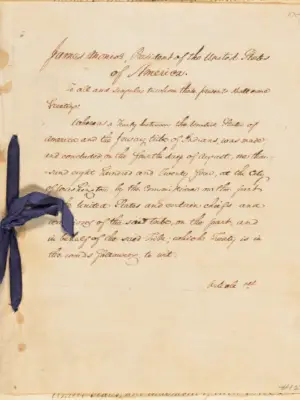 James Monroe, President of the United States
of America.
To all and singular to whom these presents shall come
Greeting:
Whereas a Treaty between the United States of
America and the Ioway tribe of Indians, was made
and concluded on the fourth day of August, one thou-
sand eight hundred and Twenty four, at the City
of Washington by the Commissioner on the part
the United States and certain chiefs and
of the said tribe, on the part, and
in behalf of the said Tribe; which Treaty is in
the words following to wit:
Article 1st